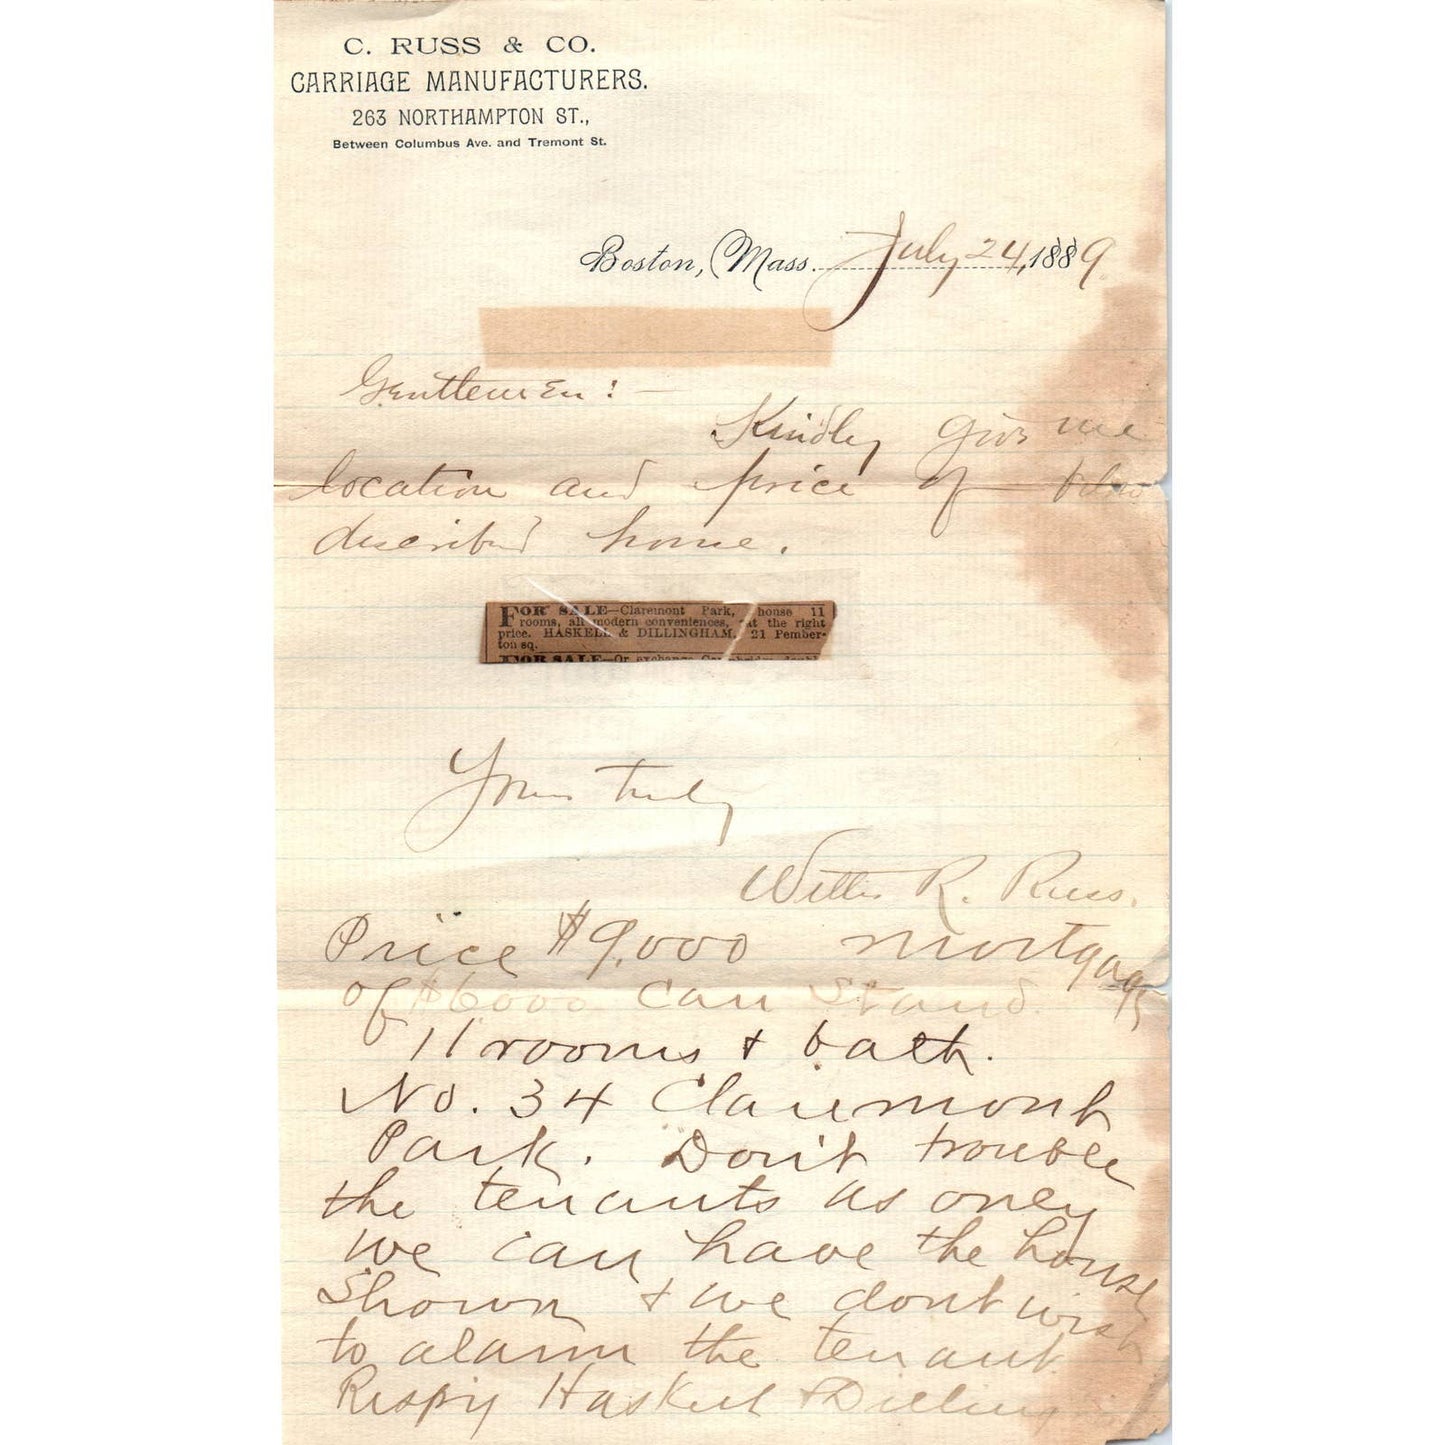 C. RUSS & CO.
CARRIAGE MANUFACTURERS.
263 NORTHAMPTON ST.,
Between Columbus Ave. and Tremont St.
Boston, Mass. July 24, 1889.
Gentlemen: –
Kindly give me
location and price of below
described house.
FOR SALE—Claremont Park, house 11
rooms, all modern conveniences, at the right
price. HASKELL & DILLINGHAM, 21 Pember-
ton sq.
FOR SALE—Or exchange
Yours truly
R. Russ.
Price $9,000 mortgage
of $6000 can stand.
11 rooms & bath.
No. 34 Claremont
Park. Don't trouble
the tenants as only
we can have the house
shown & we dont wish
to alarm the tenant.
Respy Haskell & Dilling